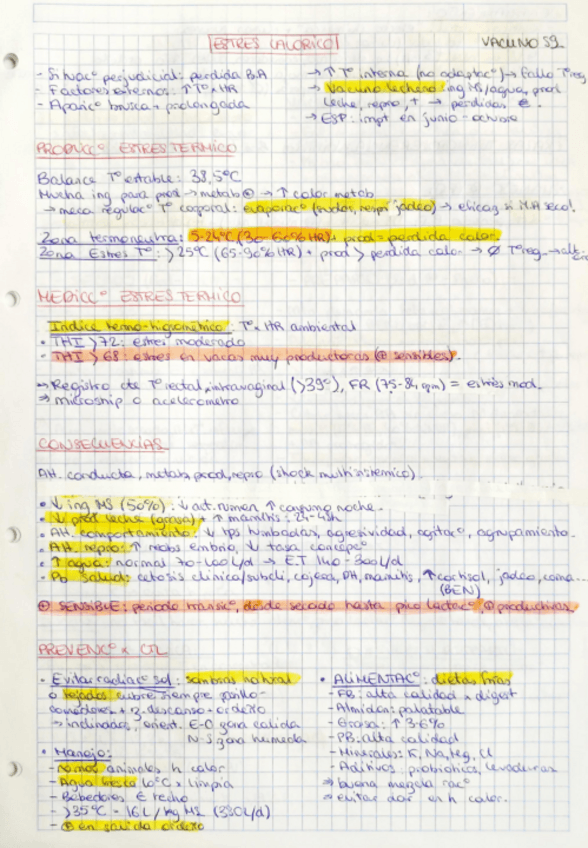 ESTRES CALORICO
VACUNO S2
- Situac° perjudicial: perdida BA
- Factores externos: ↑T° x HR
- Aparic° brusca + prolongada
→ ↑ T° interna (no adaptac°) → fallo T°reg
→ Vacuno lechero: ing MS/agua, prod
leche, repro, † → perdidas €.
→ ESP: impt en junio - octubre
PRODUCC° ESTRES TERMICO
Balance T° estable: 38,5°C
Mucha ing para prod → metab ⊕ → ↑ calor metab
→ meca regulac° T° corporal: evaporac° (sudor, respi jadeo) → eficaz si MA seco!
Zona termoneutra: 5-24°C (30-60% HR) + prod = perdida calor.
Zona Estres T°: >25°C (65-90% HR) + prod > perdida calor → Ø T°reg →
MEDICC° ESTRES TERMICO
Indice termo-higrometrico: T° x HR ambiental
• THI >72: estres moderado
• THI >68: estres en vacas muy productoras (⊕ sensibles).
→ Registro de T° rectal, intravaginal (>39°), FR (75-84 rpm) = estrés mod.
⇒ microship o acelerometro
CONSECUENCIAS
Alt. conducta, metab, prod, repro (shock multisistemico).
• ↓ ing MS (50%): ↓ act. rumen ↑ consumo noche.
• ↓ prod leche (grasa), ↑ mamitis: 24-48h
• Alt. comportamiento: ↓ tps tumbadas, agresividad, agitac°, agrupamiento.
• Alt. repro: ↑ reabs embrio, ↓ tasa concepc°
• ↑ agua: normal 70-100L/d → E.T 140-300L/d
• Pb salud: cetosis clinica/subcli, cojeras, DA, mamitis, ↑ cortisol, jadeo, coma...
(BEN)
⊕ SENSIBLE: periodo transic°, desde secado hasta pico lactac°, ⊕ productivas.
PREVENC° x CTL
• Evitar radiac° sol: sombras natural
o tejados cubre siempre pasillo-
comederos + z. descanso + ordeño
→ inclinados, orient. E-O zona calida
N-S zona humeda
• Manejo:
- No mov animales h calor
- Agua fresca 10°C x limpia
- Bebederos € techo
- >35°C = 16L/kg MS (330L/d)
- ⊕ en salida ordeño
• ALIMENTAC°: dietas frias
- FB: alta calidad x digest
- Almidon: palatable
- Grasa: ↑ 3-6%
- PB: alta calidad
- Minerales: K, Na, Mg, Cl
- Aditivos: probioticos, levaduras
⇒ buena mezcla rac°
⇒ evitar dar en h calor.